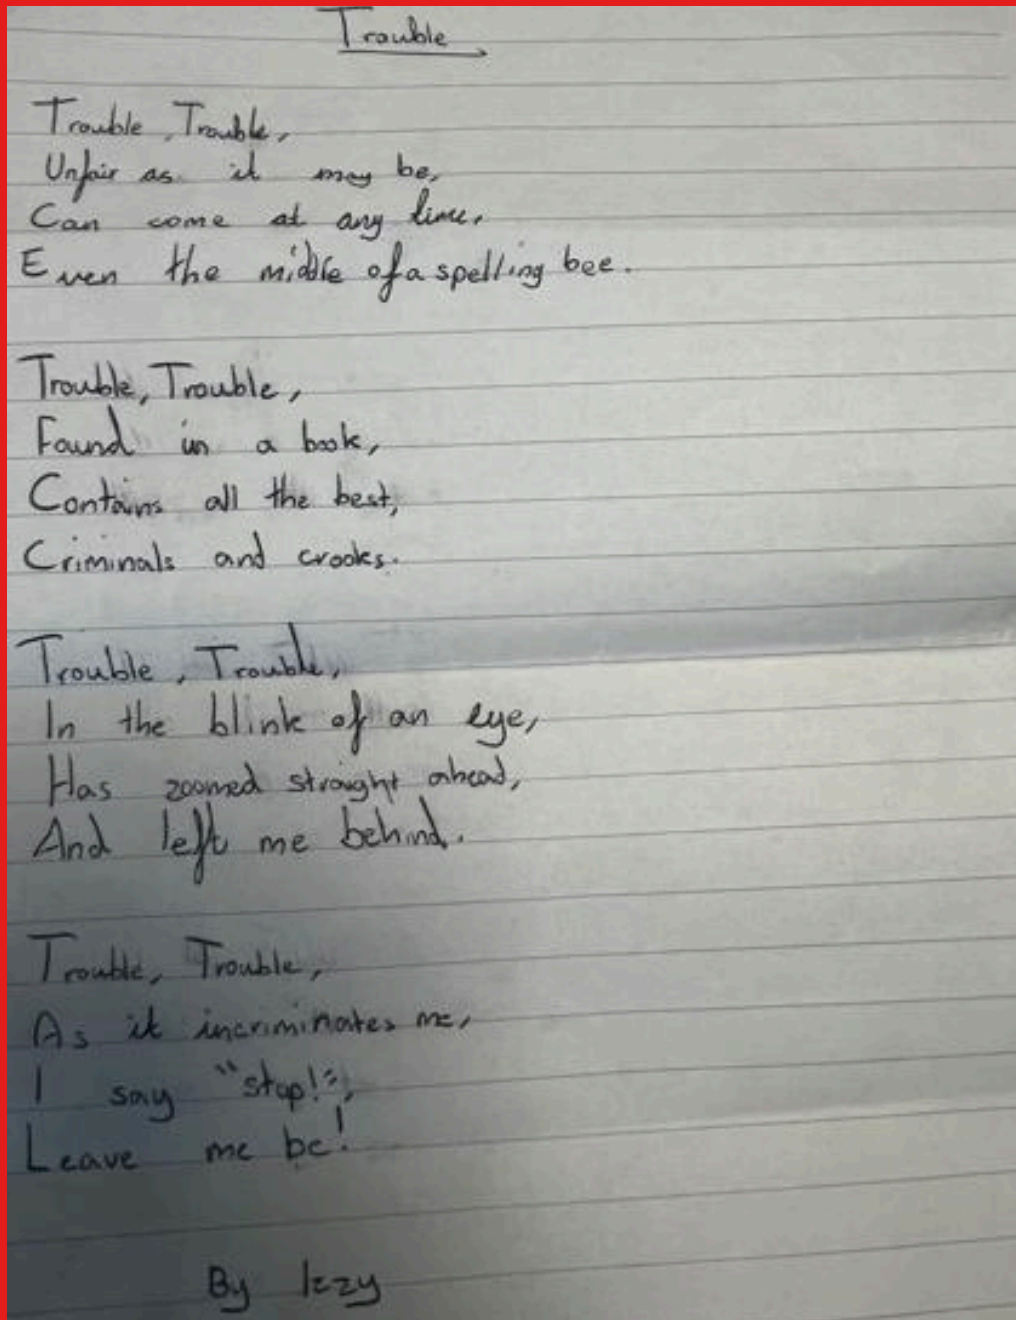 Trouble
Trouble, Trouble,
Unfair as it may be,
Can come at any time,
Even the middle of a spelling bee.
Trouble, Trouble,
Found in a book,
Contains all the best,
Criminals and crooks.
Trouble, Trouble,
In the blink of an eye,
Has zoomed straight ahead,
And left me behind.
Trouble, Trouble,
As it incriminates me,
I say "stop!",
Leave me be!
By Izzy